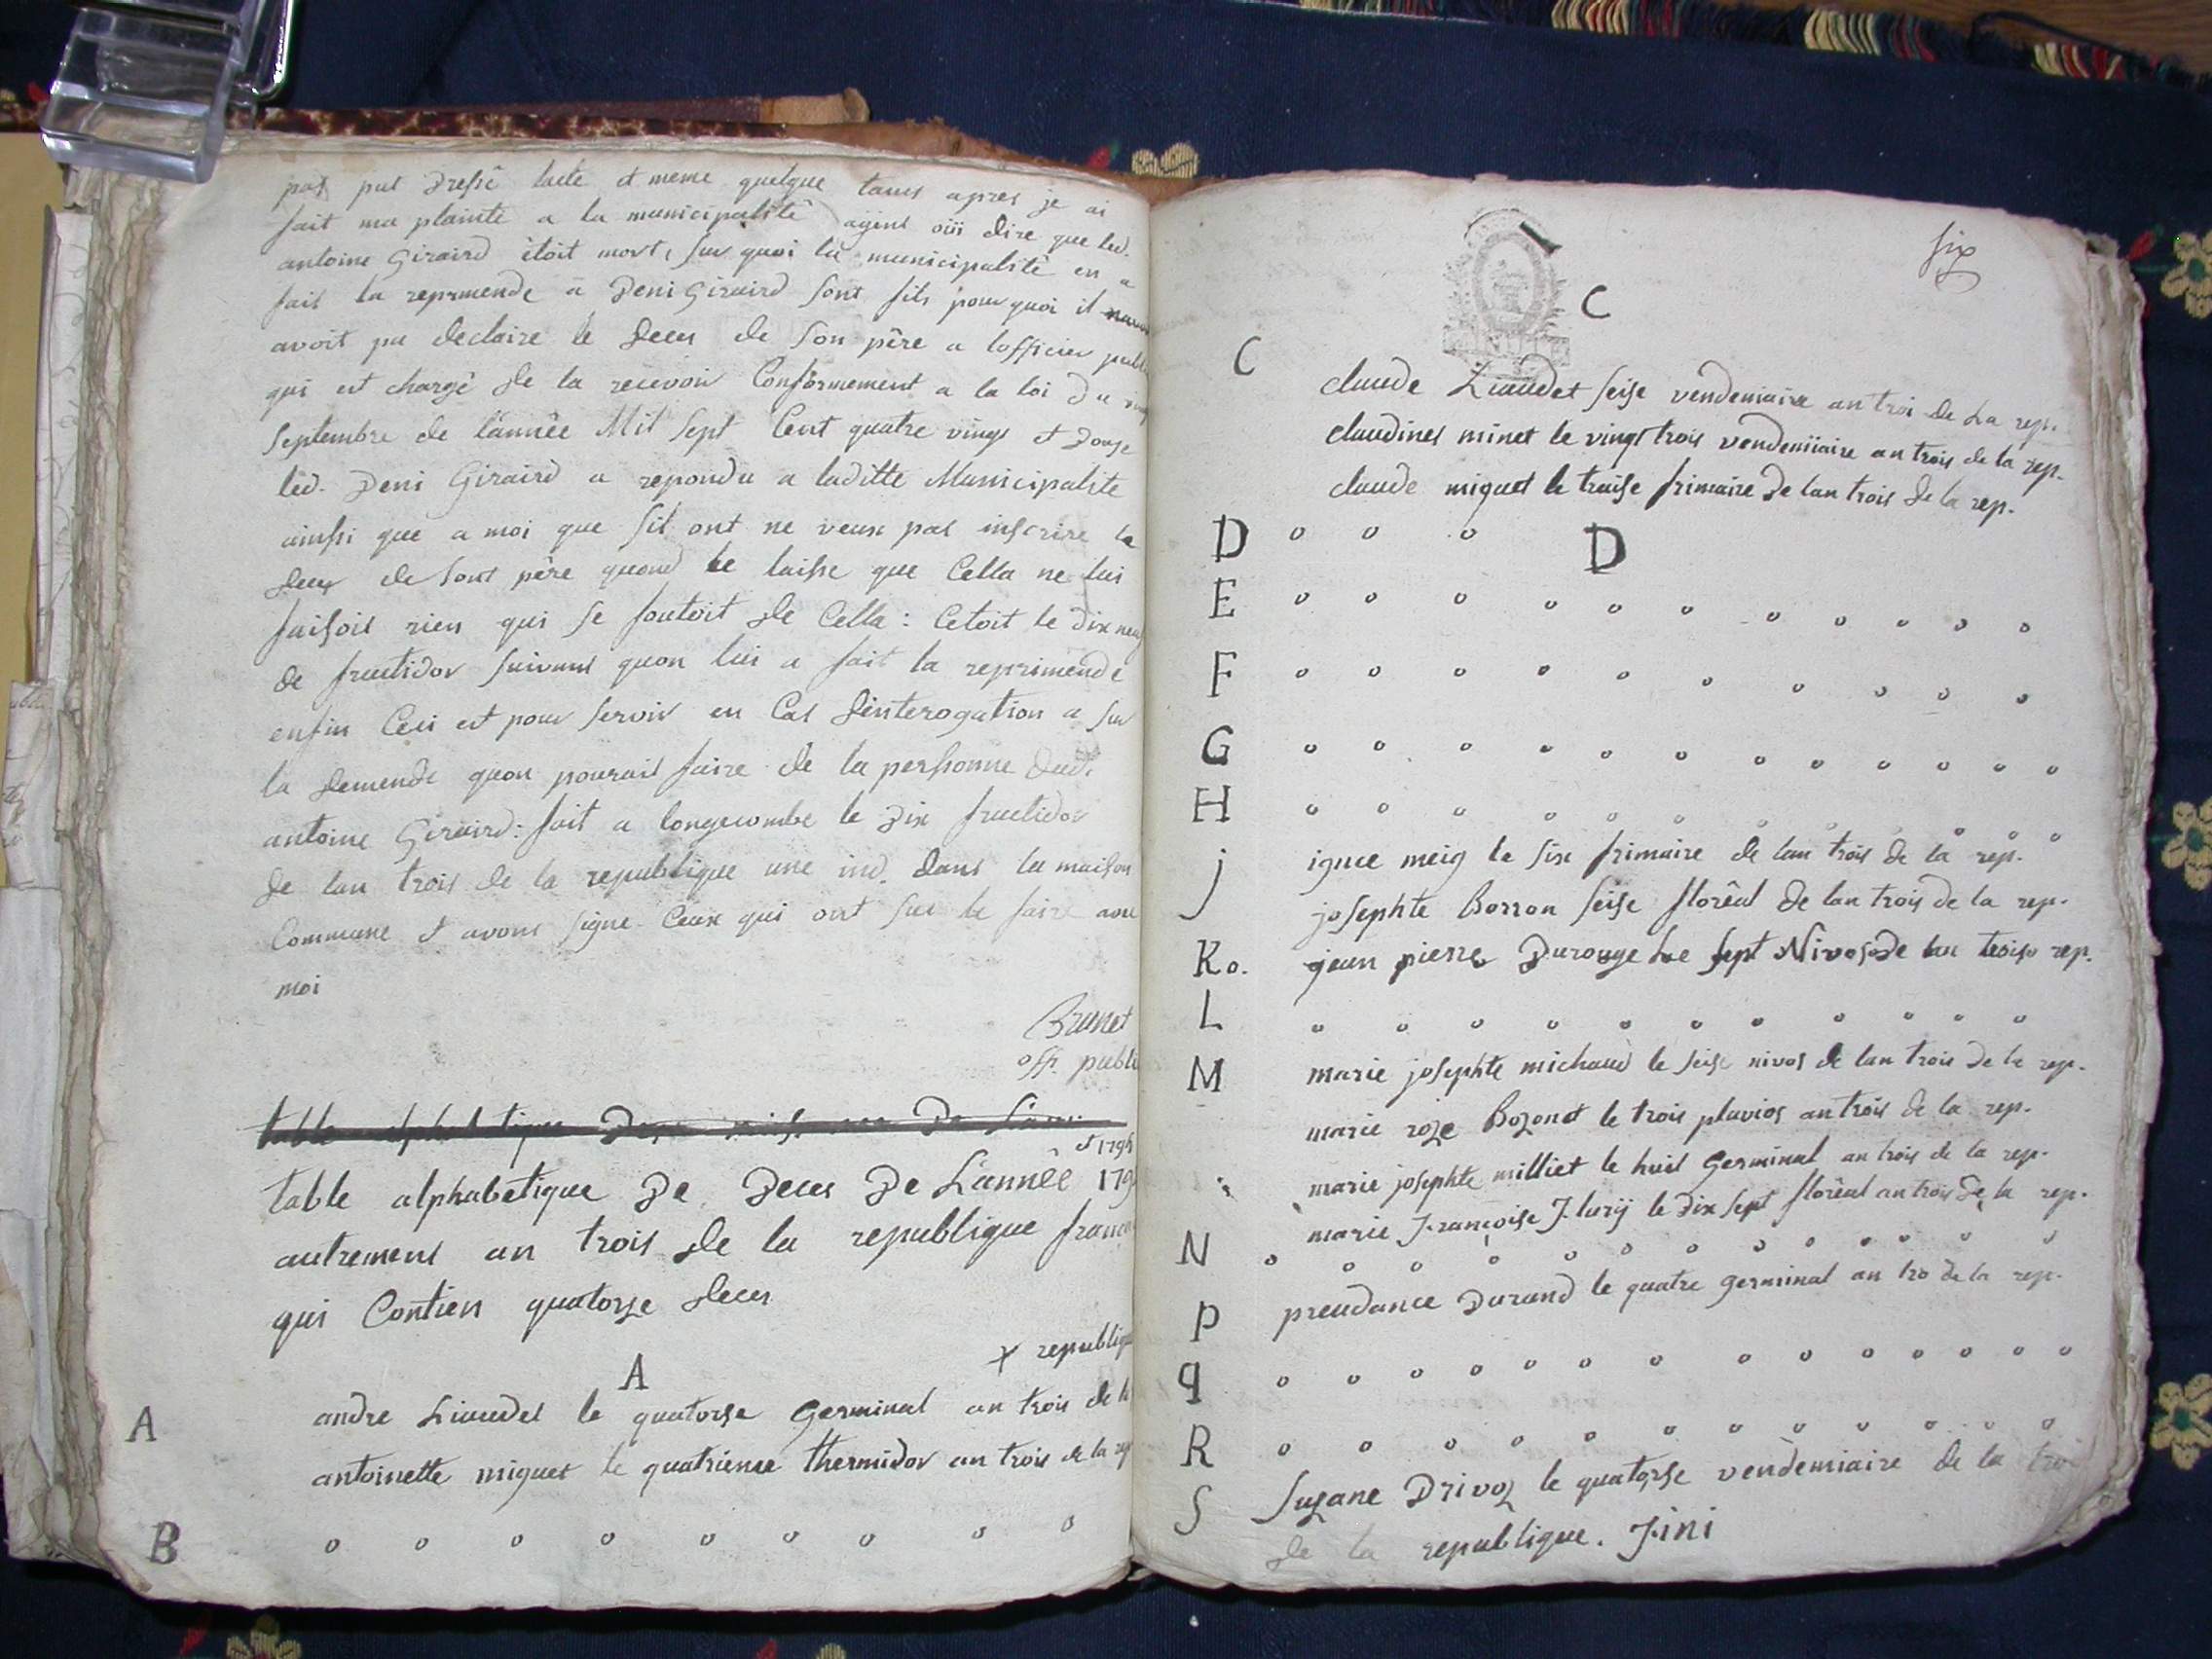 pas put dressê lacte et meme quelque tams apres je ai
fait ma plainte a la municipalitê ayent oüi dire que led.
antoine Giraird êtoit mort, sur quoi la municipalitê en a
fait la reprimende a Deni Giraird sont fils pourquoi il
avoit pa declaire le deces de son pêre a lofficier publi
qui est chargê de la recevoir Conformement a la loi du
septembre de lannêe Mil sept Cent quatre vings et Douze
led. Deni Giraird a repondu a laditte Municipalite
ainssi que a moi que sil ont ne veux pas inscrire le
deces de sont pêre quond le laisse que Cella ne lui
faisoit rien qui se foutoit de Cella : Cetoit le dix neu
de fructidor suivans quon lui a fait la reprimende
enfin Ceci est pour servir en Cas dinterogation a sur
la demende quon pourait faire de la perssonne dud.
antoine Giraird : fait a longecombe le dix fructidor
de lan trois de la republique une ind. dans la maison
Commune et avons signe Ceux qui ont su le faire avec
moi
Brunet
off. publi
table alphabetique De De Lann
et 1795
table alphabetique De Deces De Lannêe 179
autrement an trois de la republique franc
qui Contien quatorze deces
A
x republiq
A andre Liaudet le quatorse Germinal an trois de la
antoinette miguet le quatrieme thermidor an trois de la rep
B o o o o o o o o o
six
C
C claude Liaudet seise vendemiaire an troi de La rep.
claudines minet le vingt trois vendemiaire an trois de la rep.
claude miguet le traise frimaire de lan trois de la rep.
D o o o D
E o o o o o o o o o o o
F o o o o o o o o o o
G o o o o o o o o o o o o
H o o o o o o o o o o o
j ignce meig le six frimaire de lan trois de la rep.
josephte Borron seise florêal de lan trois de la rep.
Ko. jean pierre Durouge Le sept Nivos de lan trois rep.
L o o o o o o o o o o o
M marie josephte michaud le seise nivos de lan trois de la rep.
marie roze Bozonet le trois pluvios an trois de la rep.
marie josephte milliet le huit Germinal an trois de la rep.
marie françoise flury le dix sept florêal an trois de la rep.
N o o o o o o o o o o o o
p preudance Durand le quatre germinal an tro de la rep.
q o o o o o o o o o o o o o
R o o o o o o o o o o o
S suzane Drivoz le quatorse vendemiaire de la troi
de la republique. fini